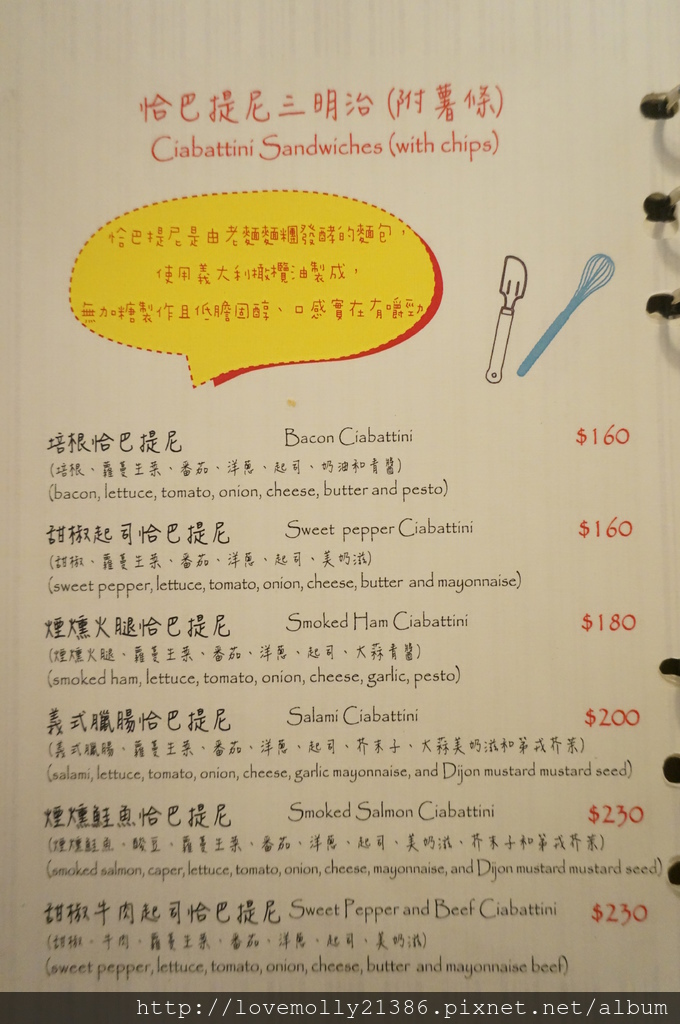 恰巴提尼三明治 (附薯條)
Ciabattini Sandwiches (with chips)
恰巴提尼是由老麵麵糰發酵的麵包,
使用義大利橄欖油製成,
無加糖製作且低膽固醇、口感實在有嚼勁
培根恰巴提尼 Bacon Ciabattini $160
(培根、蘿蔓生菜、番茄、洋蔥、起司、奶油和青醬)
(bacon, lettuce, tomato, onion, cheese, butter and pesto)
甜椒起司恰巴提尼 Sweet pepper Ciabattini $160
(甜椒、蘿蔓生菜、番茄、洋蔥、起司、美奶滋)
(sweet pepper, lettuce, tomato, onion, cheese, butter and mayonnaise)
煙燻火腿恰巴提尼 Smoked Ham Ciabattini $180
(煙燻火腿、蘿蔓生菜、番茄、洋蔥、起司、大蒜青醬)
(smoked ham, lettuce, tomato, onion, cheese, garlic, pesto)
義式臘腸恰巴提尼 Salami Ciabattini $200
(義式臘腸、蘿蔓生菜、番茄、洋蔥、起司、芥末子、大蒜美奶滋和第戎芥茉)
(salami, lettuce, tomato, onion, cheese, garlic mayonnaise, and Dijon mustard mustard seed)
煙燻鮭魚恰巴提尼 Smoked Salmon Ciabattini $230
(煙燻鮭魚、酸豆、蘿蔓生菜、番茄、洋蔥、起司、美奶滋、芥末子和第戎芥茉)
(smoked salmon, caper, lettuce, tomato, onion, cheese, mayonnaise, and Dijon mustard mustard seed)
甜椒牛肉起司恰巴提尼 Sweet Pepper and Beef Ciabattini $230
(甜椒、牛肉、蘿蔓生菜、番茄、洋蔥、起司、美奶滋)
(sweet pepper, lettuce, tomato, onion, cheese, butter and mayonnaise beef)
http://lovemolly21386.pixnet.net/album